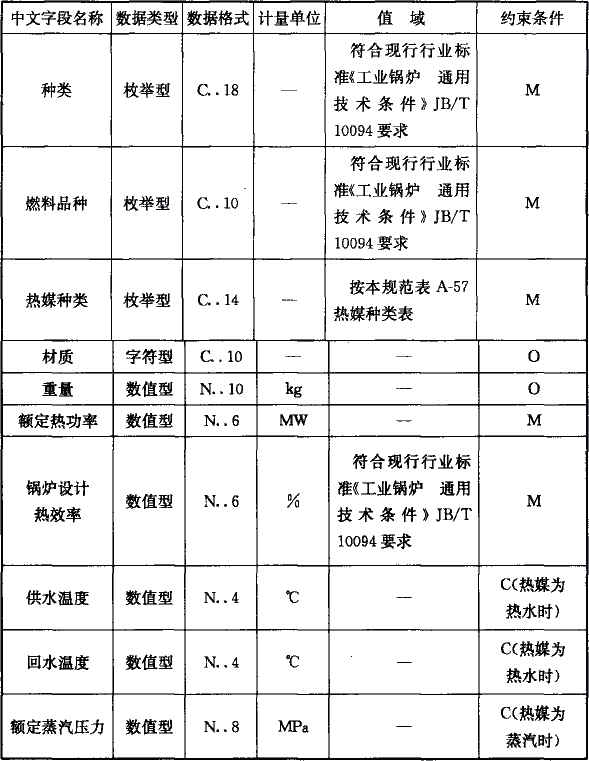 中文字段名称 数据类型 数据格式 计量单位 值 域 约束条件
种类 枚举型 C..18 — 符合现行行业标
准《工业锅炉 通用
技术条件》JB/T
10094要求 M
燃料品种 枚举型 C..10 — 符合现行行业标
准《工业锅炉 通用
技术条件》JB/T
10094要求 M
热媒种类 枚举型 C..14 — 按本规范表 A-57
热媒种类表 M
材质 字符型 C..10 — — O
重量 数值型 N..10 kg — O
额定热功率 数值型 N..6 MW — M
锅炉设计
热效率 数值型 N..6 % 符合现行行业标
准《工业锅炉 通用
技术条件》JB/T
10094要求 M
供水温度 数值型 N..4 ℃ — C(热媒为
热水时)
回水温度 数值型 N..4 ℃ — C(热媒为
热水时)
额定蒸汽压力 数值型 N..8 MPa — C(热媒为
蒸汽时)